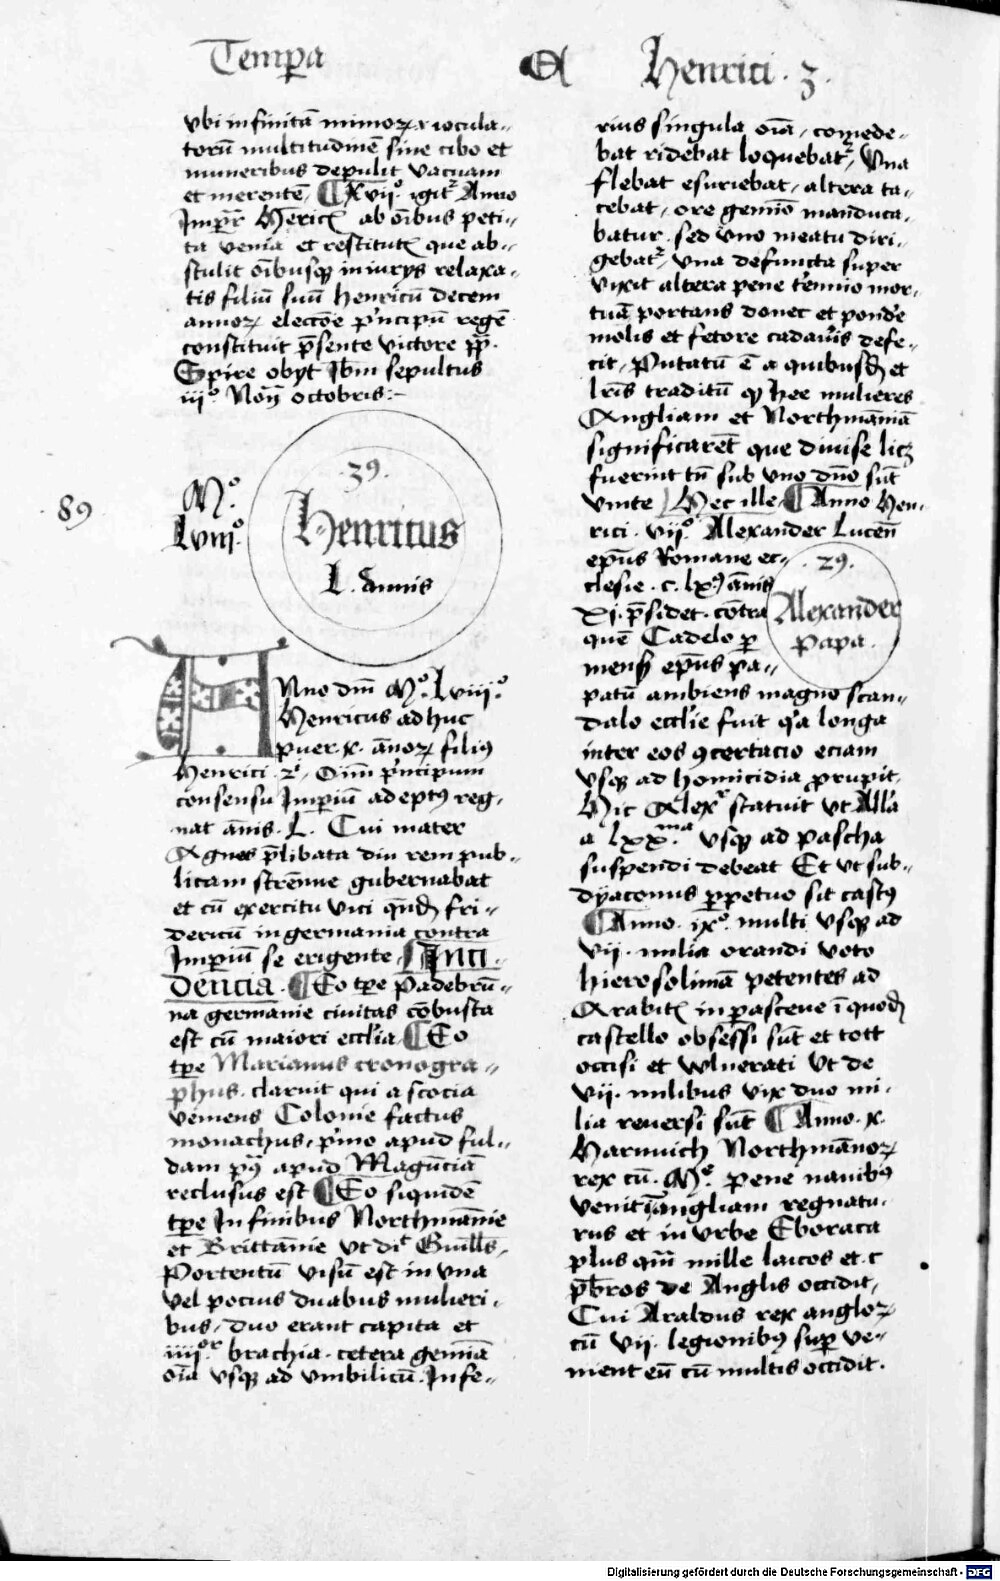 Temp̄a
A
Henrici . 3 .
vbi infinitā mimoꝝ ⁊ iocula-
torū multitudinē sine cibo et
muneribus depulit vacuam
et merentē, ¶ xvij.º igit᷑ Anno
Imp̄ꝝ Henricꝰ ab oībus peti-
ta venia et restitutꝭ que ab-
stulit oībusqꝫ iniurijs relaxa-
tis filiū suū Henricū decem
annoꝝ elect̄oe p̄ncipū regē
constituit p̄sente victore pp̄.
Spire obijt Ibm̄ sepultus
iijº. Noñ octobris :-
89
M.º
Lviij.º
39.
Henricus
L. Annis
Anno dn̄i Mº. Lviij.º
Henricus adhuc
puer .x. ānoꝝ filiꝰ
Henrici .2¹. Oīm p̄ncipum
consensu Imperiū adeptꝰ reg-
nat ānis .L. Cui mater
Agnes p̄libata diu rem pub-
licam strēnue gubernabat
et cū exercitu vici qn̄dā fri-
dericū in germania contra
Imperiū se erigente, Inci-
dencia . ¶ Eo tp̄e Padebrū-
na germanie ciuitas cōbusta
est cū maiori eccl̄ia ¶ Eo
tp̄e Marianus cronogra-
phus . claruit qui a scocia
veniens Colonie factus
monachus, p̄mo apud ful-
dam pꝰ apud Magūciā
reclusus est ¶ Eo siquidē
tp̄e In finibus Northmānie
et Brittānie vt dı͛t Guill̄s,
Portentū visū est in vna
vel pocius duabus mulieri-
bus, duo erant capita et
iiij.ºʳ brachia . cetera gemīa
oīa vsqꝫ ad vmbilicū . Infe-
rius singula oīa, comede-
bat ridebat loquebat᷑, Vna
flebat esuriebat, altera ta-
cebat, ore gemīo manduca-
batur . sed vno meatu diri-
gebat᷑, vna defuncta super
vixit altera pene t̄ennio mor-
tuā portans donec et pond̄e
molis et fetore cadau̅is defe-
cit, Putatū ē a quibusdā et
lr̄is traditū qꝫ hee mulieres
Angliam et Northmāniā
significarēt que diuise licꝫ
fuerint tn̄ sub vno dn̄o sūt
vnite Hec ille ¶ Anno Hen-
rici . vij.º Alexander Lucen̄
ep̄us Romane ec-
clesie . c. lx.º ānis
xj. p̄sidet . contra
quē Cadelo p̱
mensꝫ ep̄us pa-
patū ambiens magno scan-
dalo eccl̄ie fuit q̄a longa
inter eos ꝯcertacio eciam
vsqꝫ ad homicidia prupit,
Hic Alexʳ statuit vt Alla
a lxx.ᵐᵃ vsqꝫ ad pascha
suspendi debeat Et vt sub-
dyaconus p̱petuo sit castꝰ
¶ Anno . ix.º multi vsqꝫ ad
vij. milia orandi voto
hierosolimā petentes ad
Arabitꝭ in pasceue ī quodā
castello obsessi sūt et tott
occisi et wlnerati vt de
vij. milibus vix duo mi-
lia reuersi sūt ¶ Anno .x.
Harnuich Northmānoꝝ
rex cū .Mº. pene nauibꝰ
venit ī angliam regnatu-
rus et in vrbe Eboraca
plus qm̄ mille laicos et .c
p̄bros de Anglis occidit,
Cui Araldus rex angloꝝ
cū vij. legionibꝰ sup̱ ve-
nient eū cū multis occidit.
29.
Alexander
Papa.
Digitalisierung gefördert durch die Deutsche Forschungsgemeinschaft - DFG